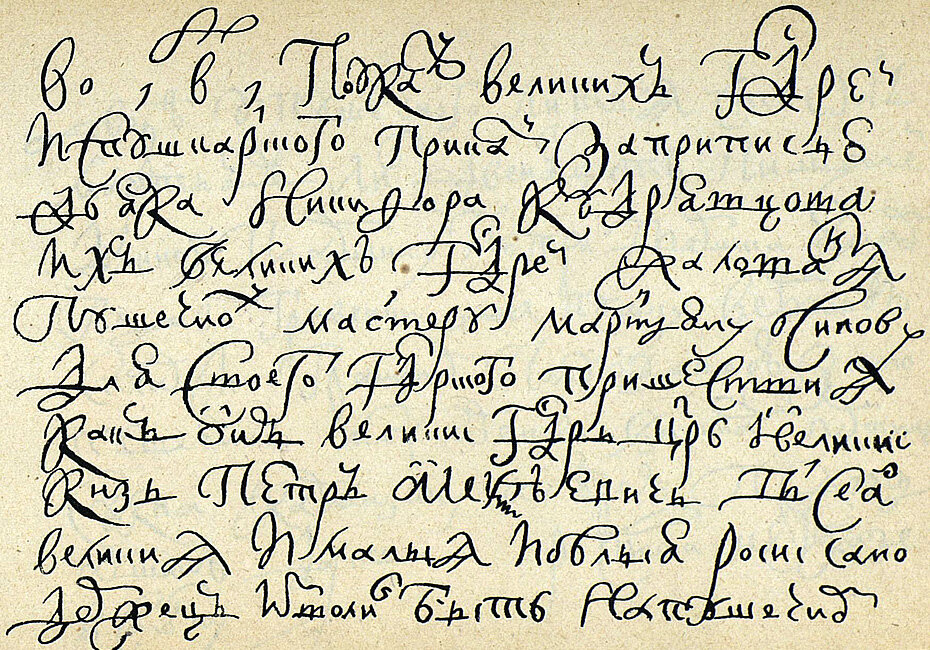 Во , в , По указꙋ великихъ Гдⷭреⷨ
ис пушкарского приказꙋ за приписью
дьяка Никифора Кꙋдрявцова
ихъ великихъ Гдⷭреⷨ жалованья
Пушечного мастеру мартьяну Осипову
для своего Гдⷭрского пришествия
какъ былъ великиі Гдⷭрь црь и великиі
Князь Петръ Алеѯѣевичь всеа
великия и малыя и белыя росиі само
держецъ изволи быть на пушечноⷨ